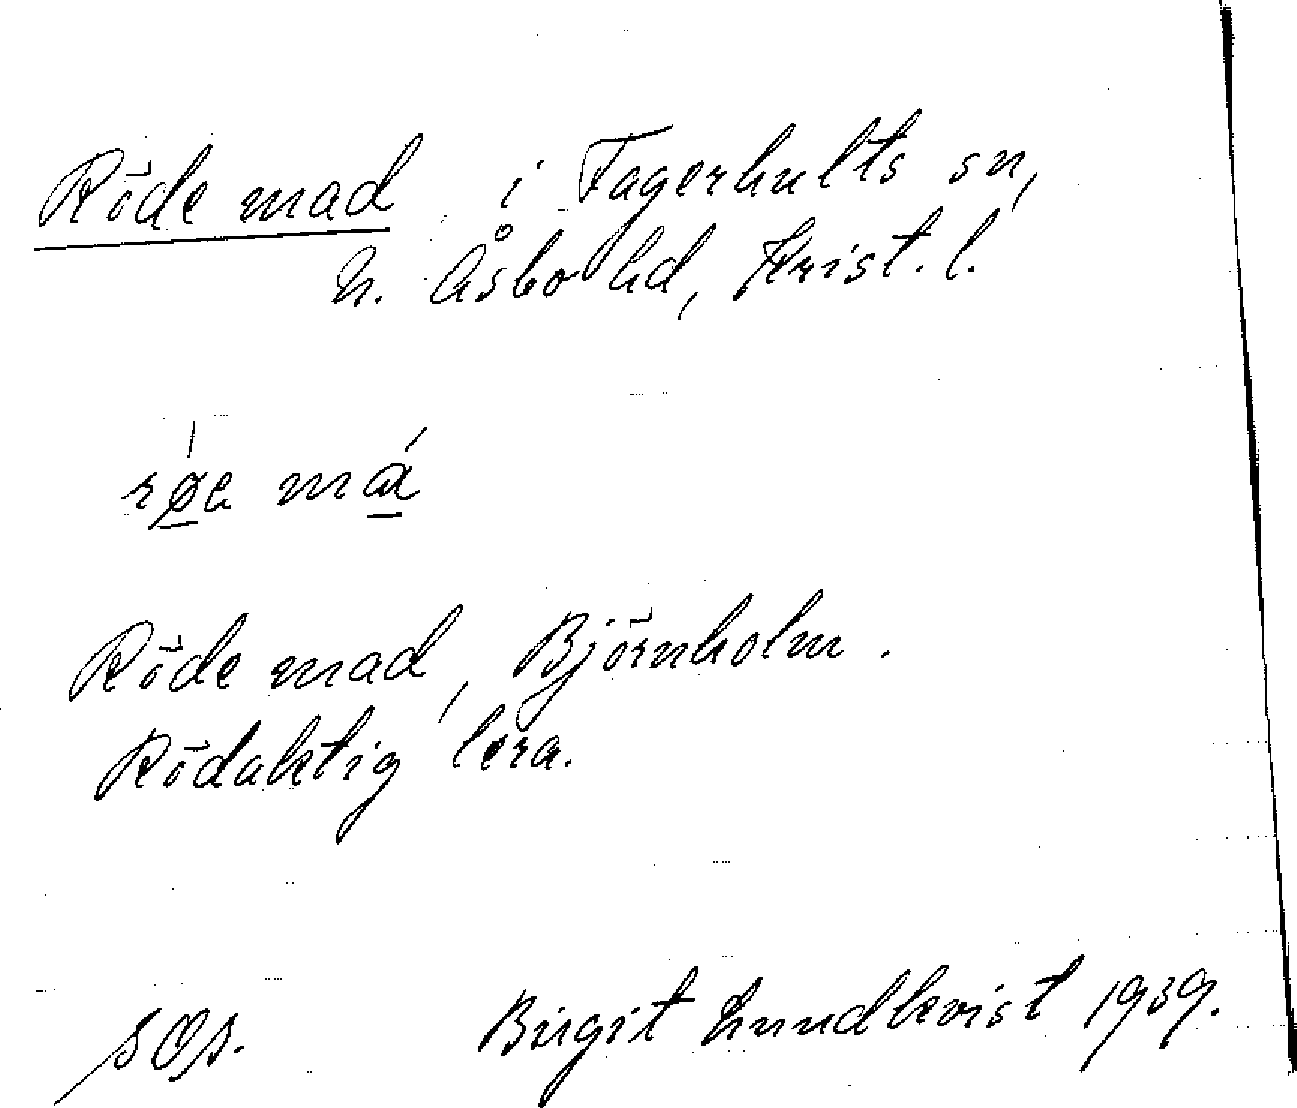 Röde mad i Fagerhults sn,
N. Åsbo hd, Krist. l.
röe má
Röde mad, Björnholm.
Rödaktig lera.
SOS. Birgit Lundkvist 1939.